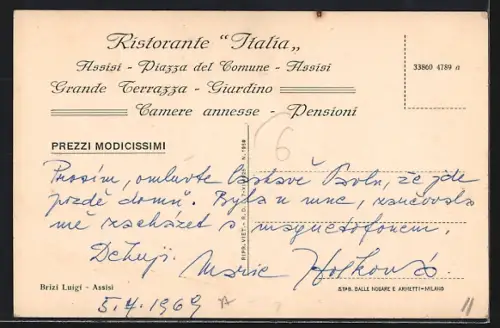 Ristorante "Italia„
Assisi - Piazza del Comune - Assisi
Grande Terrazza - Giardino
Camere annesse - Pensioni
33860 4789 a
PREZZI MODICISSIMI
6
Prosím, omluvte laskavě Pavlu, že jde
pozdě domů. Byla u mne, zaučovala
mě zacházet s magnetofonem.
Děkuji. Marie Holková
5.4.1969
Brizi Luigi - Assisi
STAB. DALLE NOGARE E ARMETTI - MILANO
11